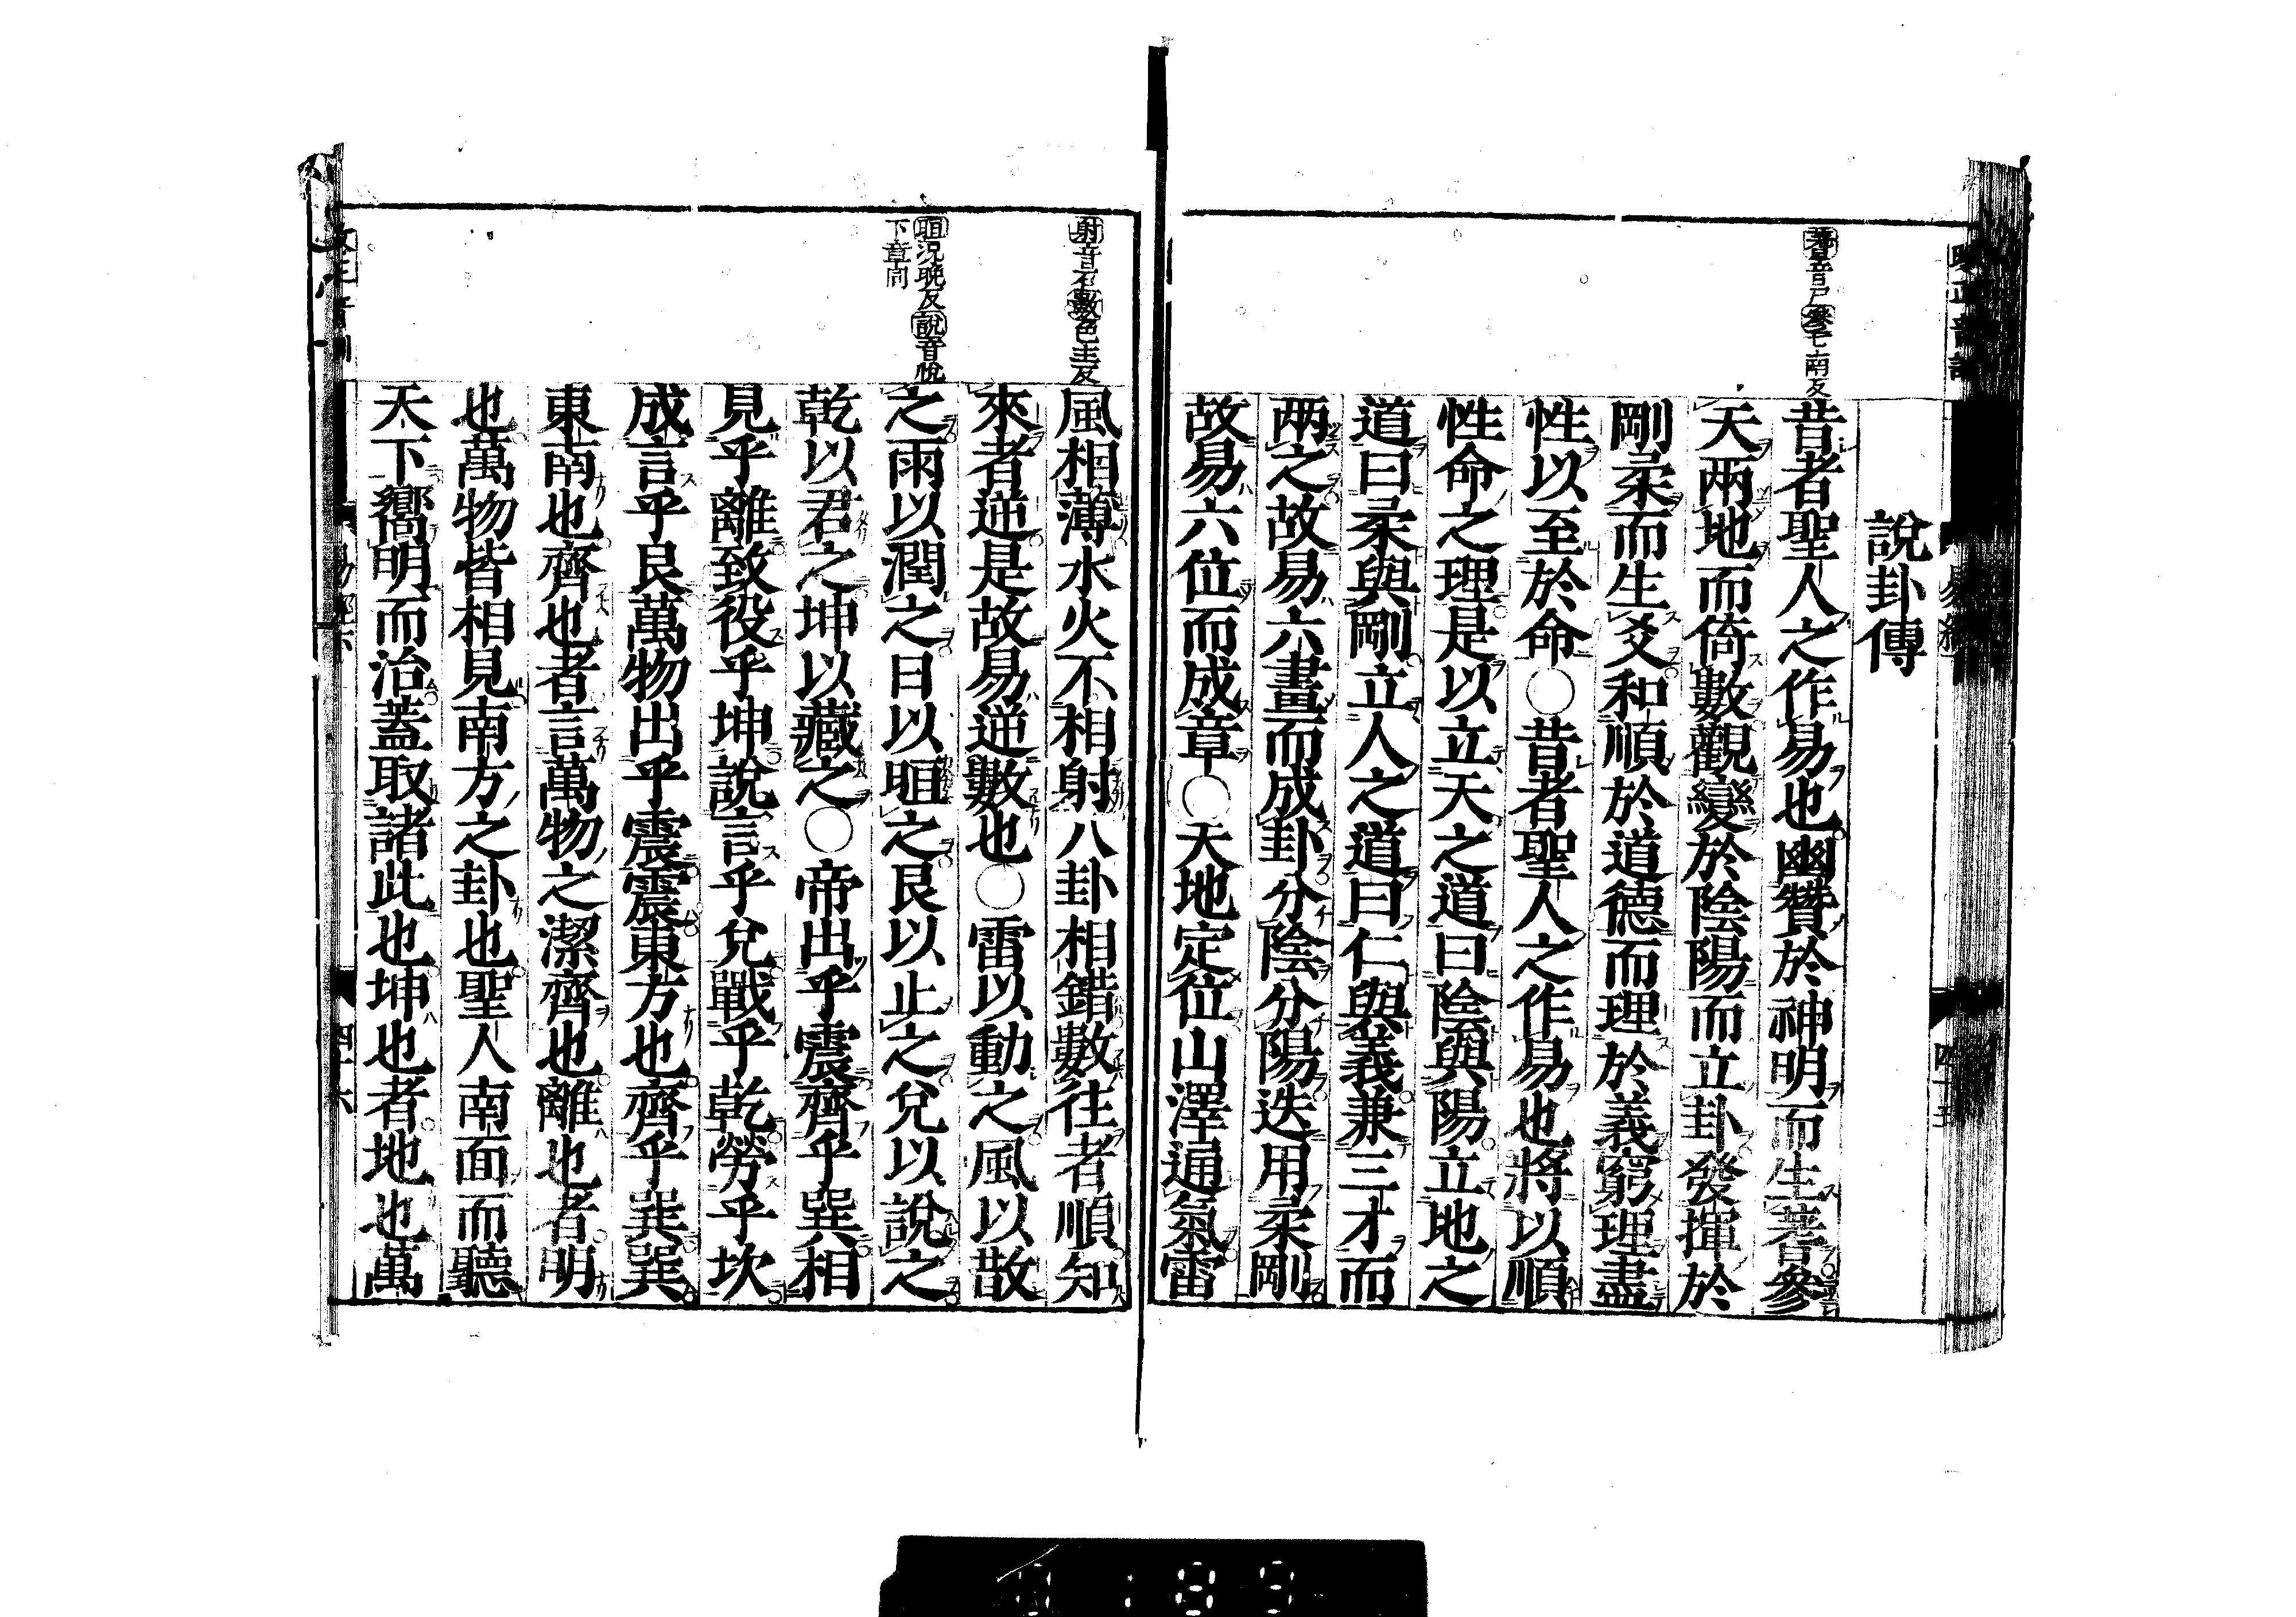 蓍音尸參七南反
說卦傳
昔者聖人之作易也幽贊於神明而生蓍參
天兩地而倚數觀變於陰陽而立卦發揮於
剛柔而生爻和順於道德而理於義窮理盡
性以至於命○昔者聖人之作易也將以順
性命之理是以立天之道曰陰與陽立地之
道曰柔與剛立人之道曰仁與義兼三才而
兩之故易六畫而成卦分陰分陽迭用柔剛
故易六位而成章○天地定位山澤通氣雷
射音石數色主反
風相薄水火不相射八卦相錯數往者順知
來者逆是故易逆數也○雷以動之風以散
晅況晚反說音悅
下章同
之雨以潤之日以晅之艮以止之兌以說之
乾以君之坤以藏之○帝出乎震齊乎巽相
見乎離致役乎坤說言乎兌戰乎乾勞乎坎
成言乎艮萬物出乎震震東方也齊乎巽巽
東南也齊也者言萬物之潔齊也離也者明
也萬物皆相見南方之卦也聖人南面而聽
天下嚮明而治蓋取諸此也坤也者地也萬
四十六